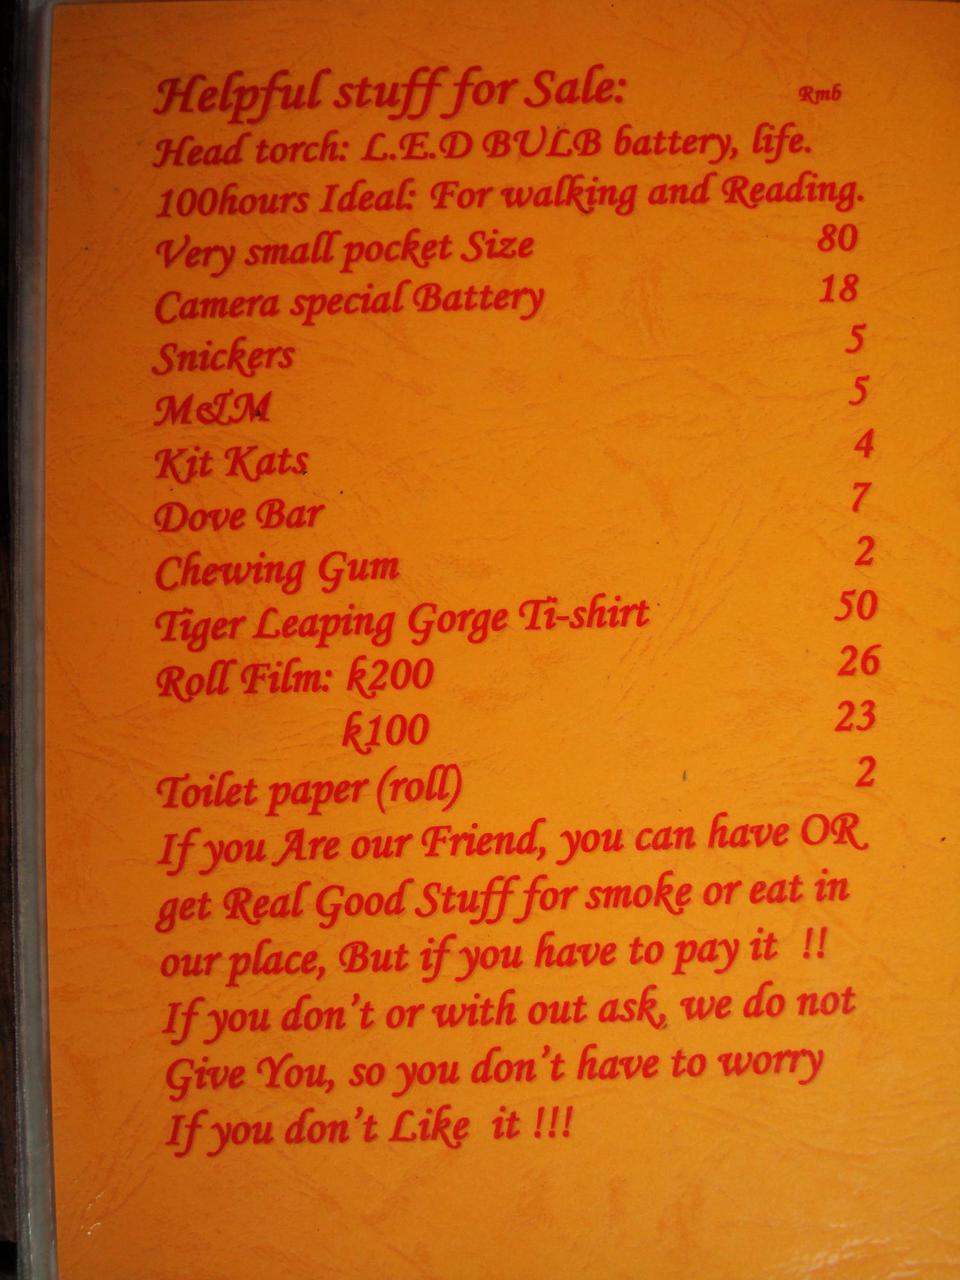 Helpful stuff for Sale: Rmb
Head torch: L.E.D BULB battery, life.
100hours Ideal: For walking and Reading.
Very small pocket Size 80
Camera special Battery 18
Snickers 5
M&M 5
Kit Kats 4
Dove Bar 7
Chewing Gum 2
Tiger Leaping Gorge Ti-shirt 50
Roll Film: k200 26
k100 23
Toilet paper (roll) 2
If you Are our Friend, you can have OR
get Real Good Stuff for smoke or eat in
our place, But if you have to pay it !!
If you don't or with out ask, we do not
Give You, so you don't have to worry
If you don't Like it !!!